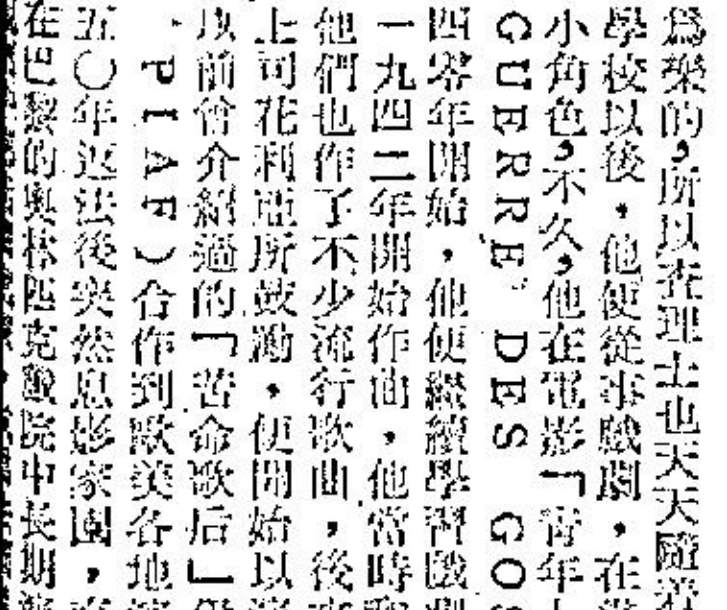 爲樂的，所以查理士也天天隨着
學校以後，他便從事戲劇，在
小角色，不久，他在電影「青年
GUERRE DES GOS
四零年開始，他便繼續學習戲劇
一九四二年開始作曲，他當時
他們也作了不少流行歌曲，後
上司花利亞所鼓勵，便開始以
以前曾介紹過的「苦命歌后」
・PIAF）合作到歐美各地
五〇年返法後突然息影家園，
在巴黎的奧林匹克戲院中長期